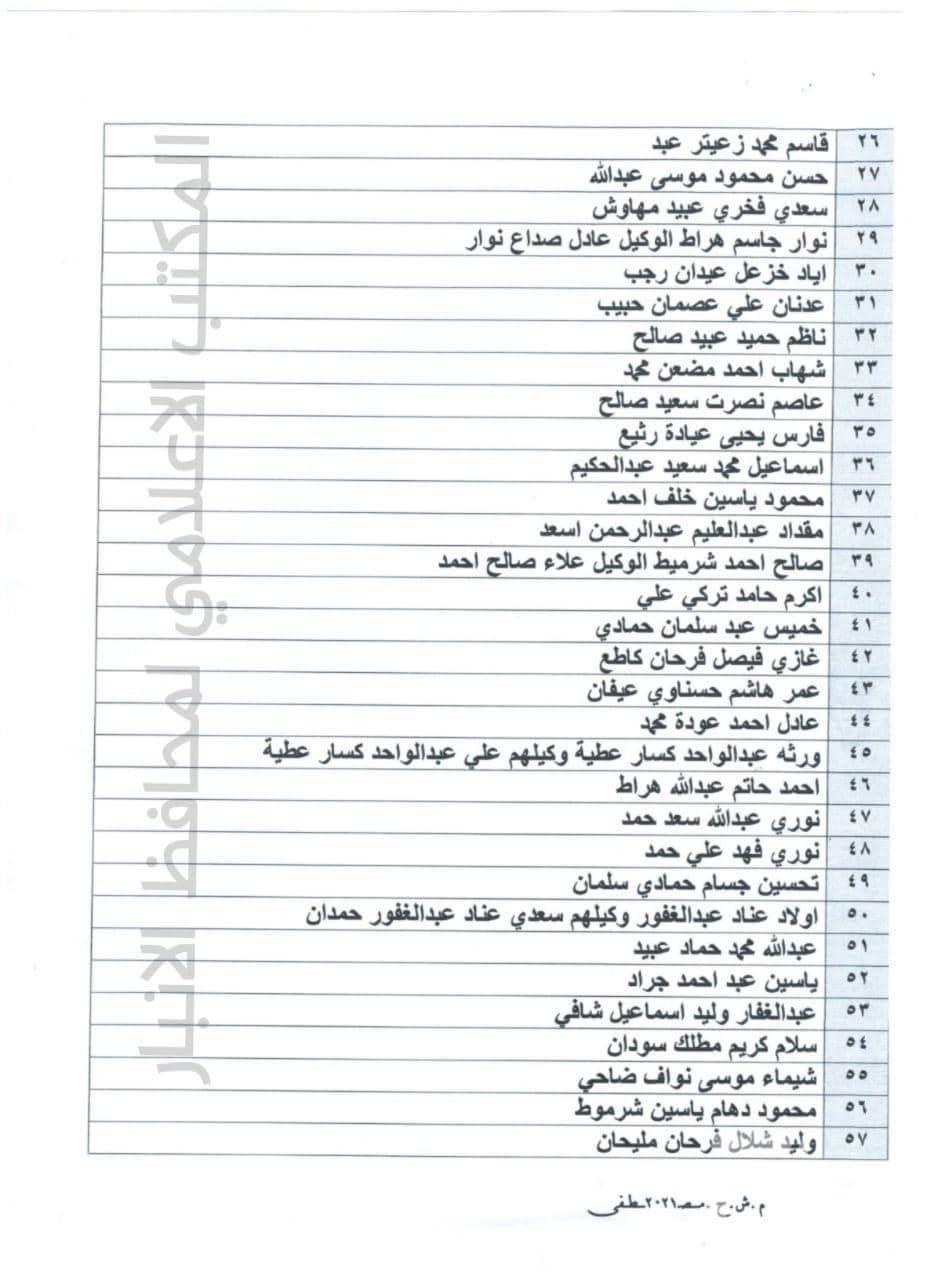 ٢٦ قاسم محمد زعيتر عبد
٢٧ حسن محمود موسى عبدالله
٢٨ سعدي فخري عبيد مهاوش
٢٩ نوار جاسم هراط الوكيل عادل صداع نوار
٣٠ اياد خزعل عيدان رجب
٣١ عدنان علي عصمان حبيب
٣٢ ناظم حميد عبيد صالح
٣٣ شهاب احمد مضعن محمد
٣٤ عاصم نصرت سعيد صالح
٣٥ فارس يحيى عيادة رثيع
٣٦ اسماعيل محمد سعيد عبدالحكيم
٣٧ محمود ياسين خلف احمد
٣٨ مقداد عبدالعليم عبدالرحمن اسعد
٣٩ صالح احمد شرميط الوكيل علاء صالح احمد
٤٠ اكرم حامد تركي علي
٤١ خميس عبد سلمان حمادي
٤٢ غازي فيصل فرحان كاطع
٤٣ عمر هاشم حسناوي عيفان
٤٤ عادل احمد عودة محمد
٤٥ ورثه عبدالواحد كسار عطية وكيلهم علي عبدالواحد كسار عطية
٤٦ احمد حاتم عبدالله هراط
٤٧ نوري عبدالله سعد حمد
٤٨ نوري فهد علي حمد
٤٩ تحسين جسام حمادي سلمان
٥٠ اولاد عناد عبدالغفور وكيلهم سعدي عناد عبدالغفور حمدان
٥١ عبدالله محمد حماد عبيد
٥٢ ياسين عبد احمد جراد
٥٣ عبدالغفار وليد اسماعيل شافي
٥٤ سلام كريم مطلك سودان
٥٥ شيماء موسى نواف ضاحي
٥٦ محمود دهام ياسين شرموط
٥٧ وليد شلال فرحان مليحان
م.ش.ح.مصـ٢٠٢١ـطفى
المكتب الاعلامي لمحافظ الانبار